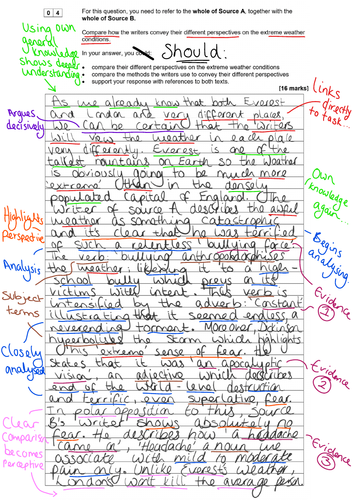 0 4
For this question, you need to refer to the whole of Source A, together with the
whole of Source B.
Compare how the writers convey their different perspectives on the extreme weather
conditions.
In your answer, you could:
Should:
• compare their different perspectives on the extreme weather conditions
• compare the methods the writers use to convey their different perspectives
• support your response with references to both texts.
[16 marks]
Using own
general
knowledge
shows deeper
understanding.
links
directly
to task
Argues
decisively
Own
knowledge
again
Highlights
perspective
Begins
analysing
Analysis
Subject
terms
Evidence
1
Closely
analysed
Evidence
2
Clear
Comparison
becomes
Perceptive
Evidence
3
As we already know that both Everest
and London are very different places,
we can be certain that the writers
will view the weather in each place
very differently. Everest is one of the
tallest mountains on Earth so the weather
is obviously going to be much more
'extreme' than in the densely
populated capital of England. The
writer of source A describes the awful
weather as something catastrophic
and it's clear that he was terrified
of such a relentless 'bullying force'.
The verb 'bullying' anthropomorphises
the weather: likening it to a high-
school bully which preys on its
victims with intent. This verb is
intensified by the adverb: 'constant'
illustrating that it seemed endless, a
neverending torment. Moreover, Dickinson
hyperbolises the storm which highlights
this extreme sense of fear. He
states that it was an 'apocalyptic
vision', an adjective which describes
end of the world-level destruction
and terrific, even superlative, fear.
In polar opposition to this, Source
B's writer shows absolutely no
fear. He describes how 'a headache
came on', 'Headache' a noun we
associate with mild to moderate
pain only. Unlike Everest's weather,
London's won't kill the average person